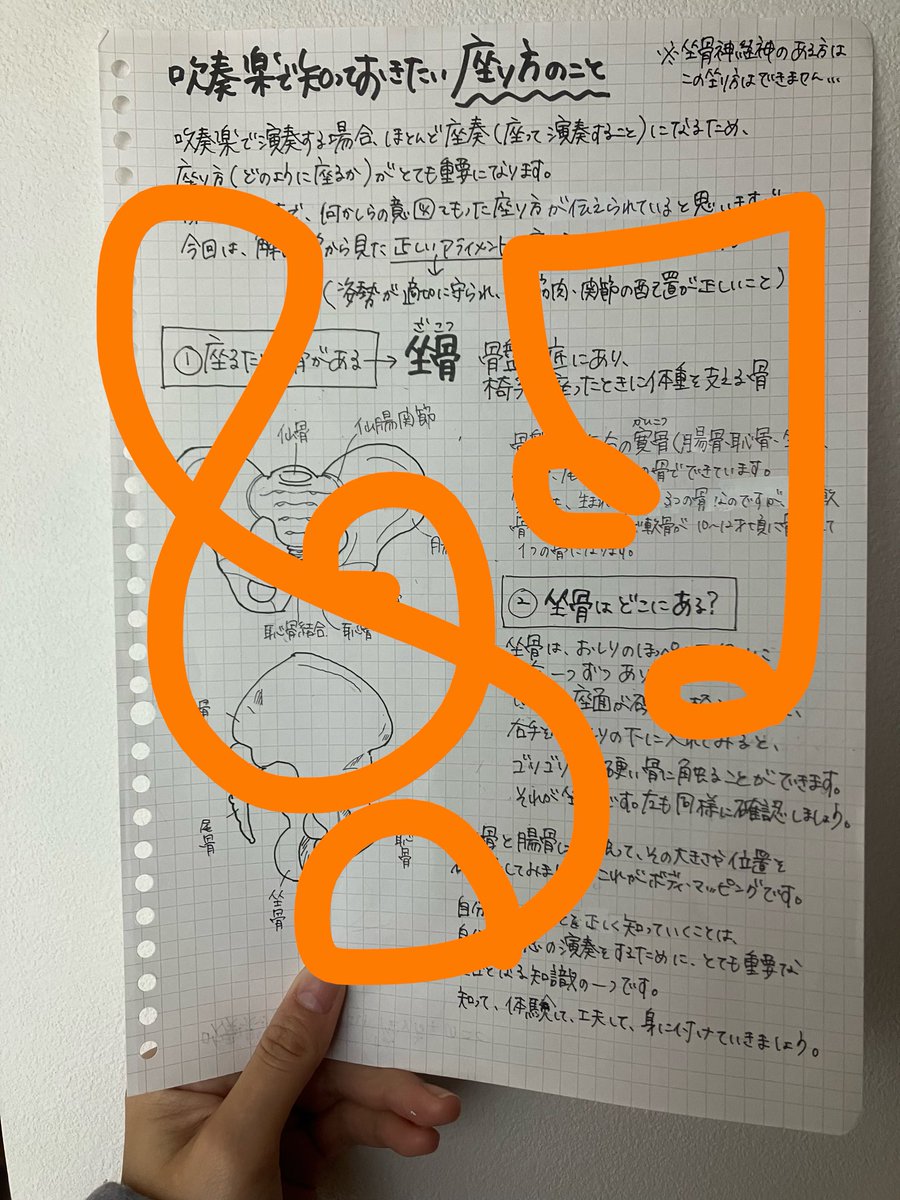 吹奏楽で知っておきたい座り方のこと
※坐骨神経神のある方は
この坐り方はできません…
吹奏楽で演奏する場合、ほとんど座奏(座って演奏すること)になるため、
座り方(どのように座るか)がとても重要になります。
何かしらの意図をもった座り方が伝えられていると思いますが
今回は、解 から見た正しいアライメント
(姿勢が適切に守られ、 筋肉、関節の配置が正しいこと)
①座るた 骨がある→坐骨
ざこつ
骨盤 底にあり、
椅子 座ったときに体重を支える骨
仙骨
仙腸関節
かんこつ
左右の寛骨(腸骨・恥骨・坐
の骨でできています。
生まれ 3つの骨なのですが、 軟
骨 軟骨が10〜12才頃に骨 て
1つの骨になります。
恥骨結合
恥骨
②坐骨はどこにある?
坐骨は、おしりのほっぺ
一つずつあり
座面が
右手を りの下に入れてみると、
ゴリゴリ 硬い骨に触ることができます。
それが坐 です。左も同様に確認しましょう。
骨
尾骨
坐骨
恥骨
骨と腸骨に して、その大きさや位置を
してみま これがボディ・マッピングです。
自分 とを正しく知っていくことは、
の演奏をするために、とても重要な
となる知識の一つです。
知って、体験して、工夫して、身に付けていきましょう。